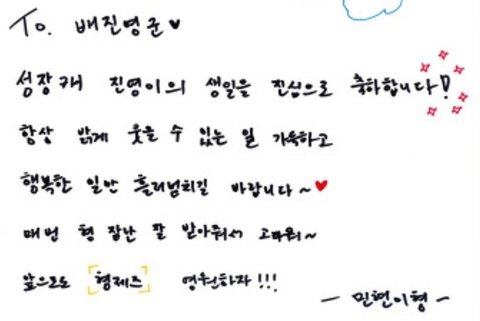 To. 배진영군♥
성장캐 진영이의 생일을 진심으로 축하합니다!
항상 밝게 웃을 수 있는 일 가득하고
행복한 일만 흘러넘치길 바랍니다~♥
매번 형 장난 잘 받아줘서 고마워~
앞으로도 [형제즈] 영원하자!!!
- 민현이형 -